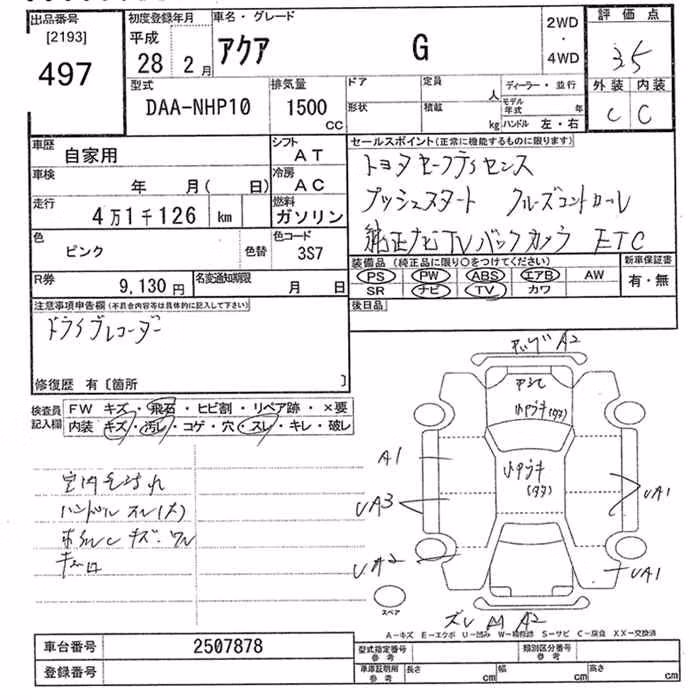 出品番号
[2193]
497
初度登録年月
平成
28 2月
車名・グレード
アクア G
2WD
・
4WD
評価点
3.5
外装 内装
C C
型式
DAA-NHP10
排気量
1500
CC
ドア 定員 人
形状 積載 kg
ディーラー・並行
モデル年式 年
ハンドル 左・右
車歴 自家用
シフト AT
車検 年 月( 日)
冷房 AC
走行 4万1千126 km
燃料 ガソリン
色 ピンク 色替
色コード 3S7
R券 9,130円
名変通知期限 月 日
セールスポイント(正常に機能するものに限ります)
トヨタセーフティセンス
プッシュスタート クルーズコントロール
純正ナビTVバックカメラ ETC
装備品(純正品に限り〇をつけてください)
PS PW ABS エアB AW
SR ナビ TV カワ
新車保証書
有・無
後日品
注意事項申告欄(不具合内容等は具体的に記入して下さい)
ドライブレコーダー
修復歴 有〔箇所 〕
検査員記入欄
FW キズ・飛石・ヒビ割・リペア跡・×要
内装 キズ・汚レ・コゲ・穴・スレ・キレ・破レ
ハンドル スレ(大)
A2
A1
UA3
UA2
UA1
UA1
A2
スペア
A-キズ E-エクボ U-凹み W-補修跡 S-サビ C-腐食 XX-交換済
車台番号 2507878
登録番号
型式指定番号参考
類別区分番号参考
車庫証明用参考 長さ cm 幅 cm 高さ cm